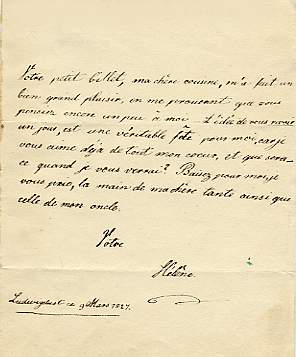 Votre petit billet, ma chère cousine, m'a fait un
bien grand plaisir, en me prouvant que vous
pensiez encore un peu à moi. L'idée de vous revoir
un jour, est une véritable fête pour moi, car je
vous aime déja de tout mon coeur, et que sera-
ce quand je vous verrai? Baisez pour moi, je
vous prie, la main de ma chère tante ainsi que
celle de mon oncle.
Votre
Hélène.
Ludwigslust ce 9 Mars 1827.